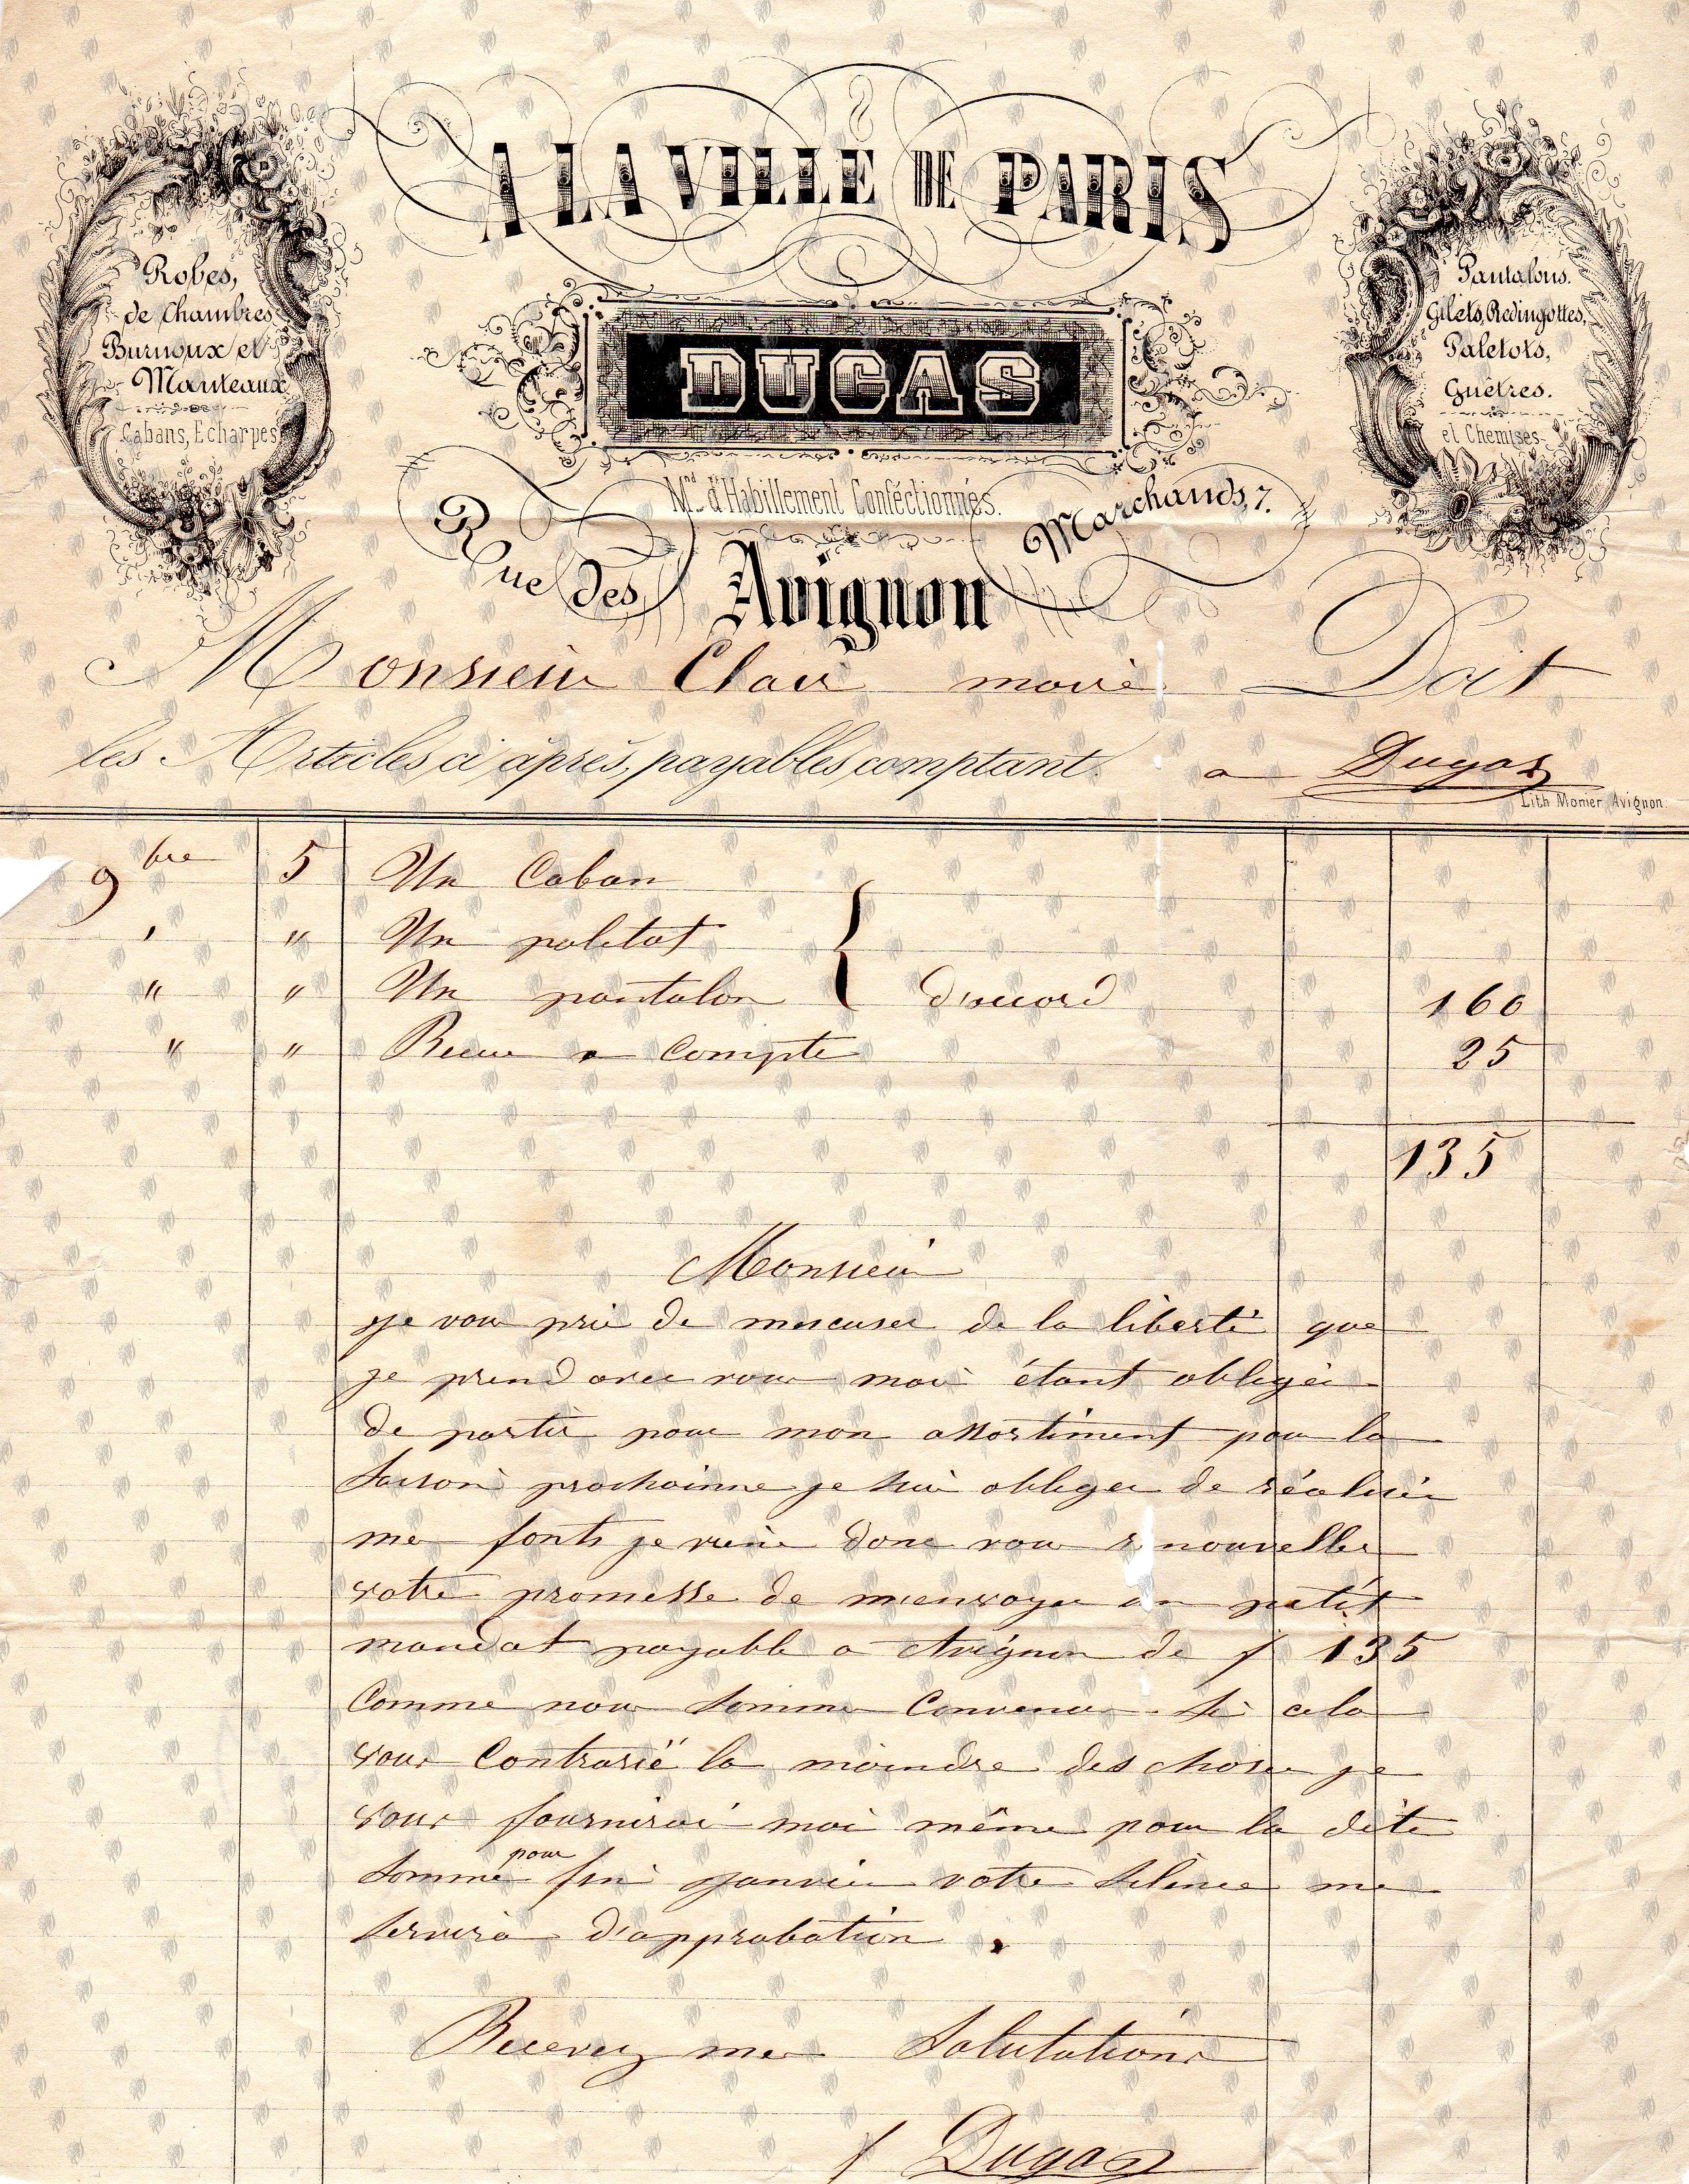 A LA VILLE DE PARIS
Robes,
de Chambres
Burnoux et
Manteaux
Cabans, Echarpes
Pantalons.
Gilets, Redingottes,
Paletots,
Guêtres.
et Chemises
DUGAS
Md. d'Habillement Conféctionnés.
Rue des Marchands, 7.
Avignon
Monsieur Clair Doit
les Articles ci après, payables comptant. a Dugas
Lith Monier Avignon.
9bre 5 Un Caban
' " Un paletot
" " Un pantalon } d'accord 160
" " Recu a Compte 25
135
Monsieur
Je vous prie de mescuser de la liberté que
je prend avec vous moi étant obligée
de partir pour mon assortiment pour la
saison prochainne je sui obliger de réaliser
me fonts je viens donc vous renouveller
votre promesse de m'envoyer un petit
mandat payable a Avignon de f 135
Comme nous somme Convenus. Si cela
vous Contrarié la moindre des chose je
vous fournirai moi même pour la dite
somme pour fin janvier votre silence me
servira d'approbation.
Recevez mes Salutations
Dugas